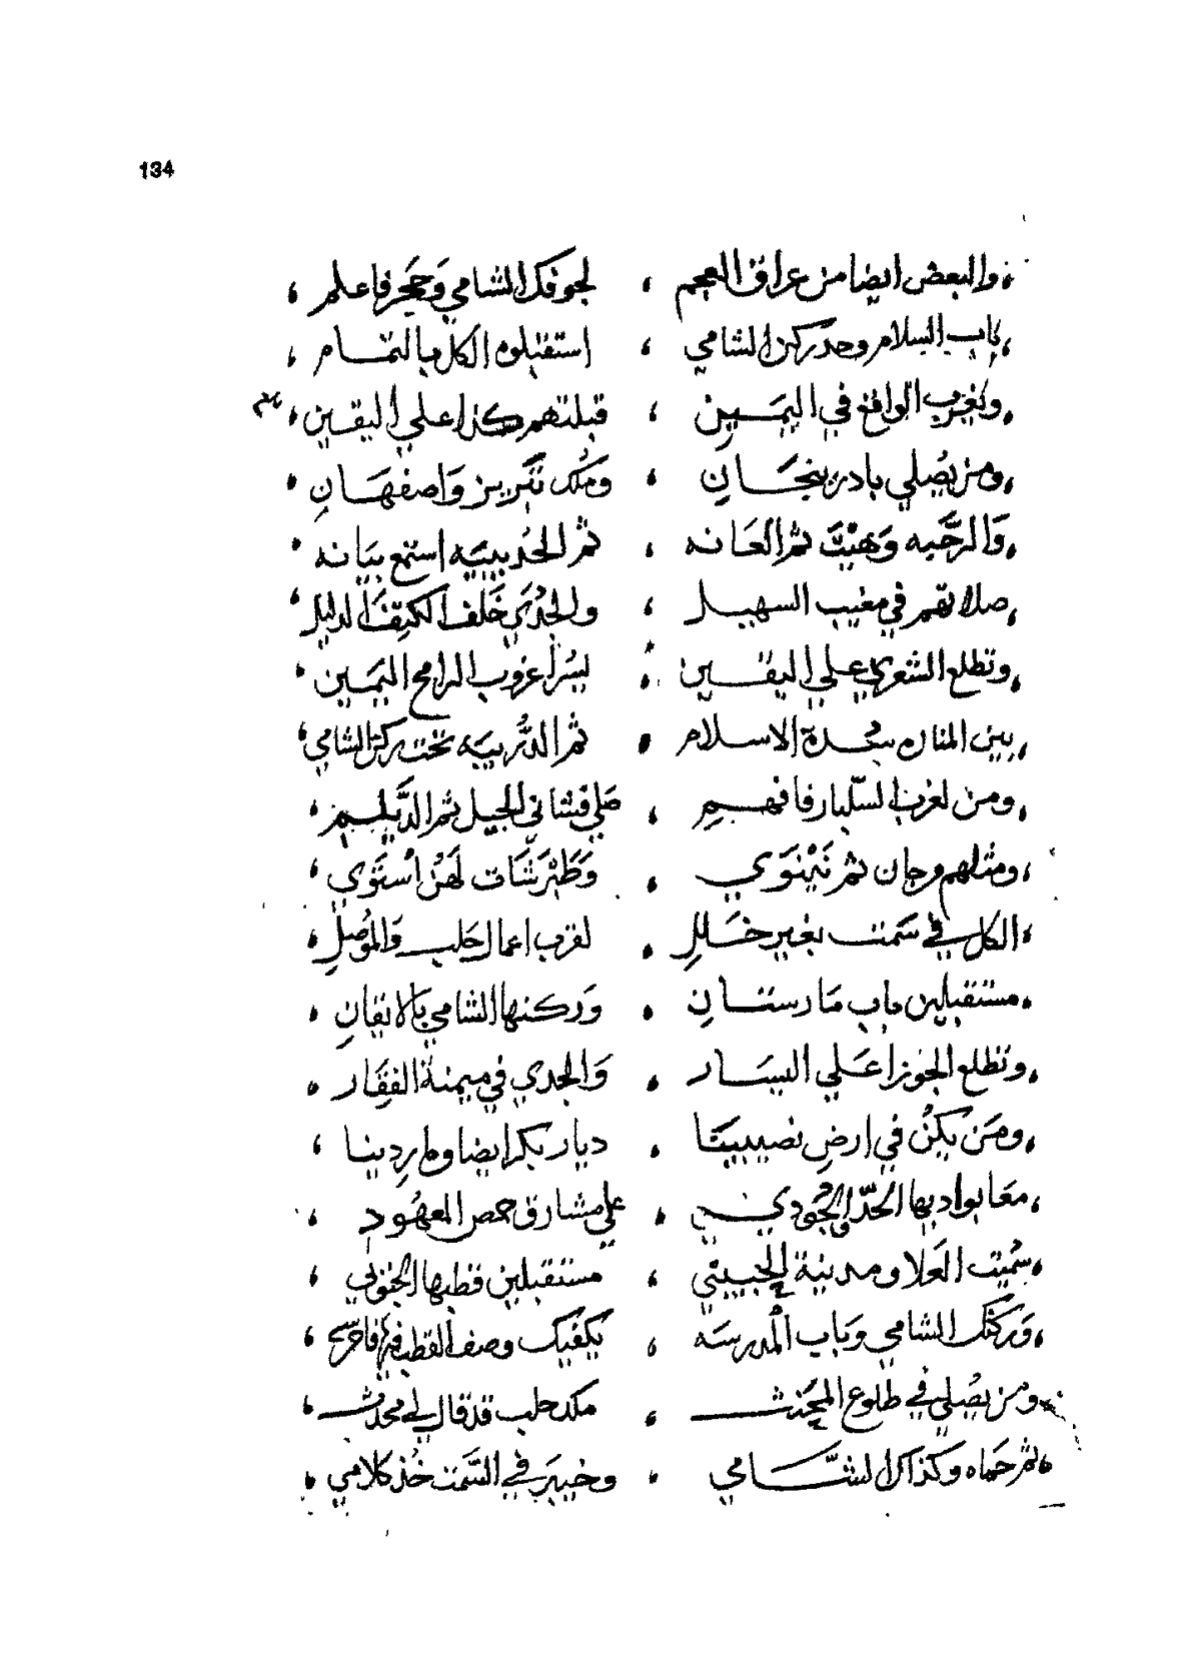 134
والبعض ايضا من عراق العجم ، لجوفك الشامي وَحَجِر فاعلم ،
باب السلام وحد ركن الشامي ، استقبلوه الكل بالتمام ،
وبغرب الواقع في اليَمَـين ، قبلتهم كذا علي اليقين ،
ومن يُصلي بادربنجَـان ، ومُلك تبريز وَاصفهَـان
وَالرحَبه وَهيْت ثم العَانه ، ثم الحُديبيَه استمع بيَانه
صلاتهم في مغيب السهيـل ، والجُدَي خَلف الكتِف الدليل ،
وتطلع الشعري علي اليقـين ، يسُرا غروب الرامح اليمَـين
بين المنار سجدة الاسلام ، ثم الدُّربيَه تحت ركن الشامي ،
ومن لغرب السّلبار فافهـمِ ، صَلي قثنا في الجيل ثم الدَّيلم ،
ومثلهم وجان ثم نَيْنَوَي ، وَطَبْرَسَّات لهَن أستَوَي ،
الكل في سَمت بغير خَـللِ ، لقرب اعمال حَلب وَالموُصِلِ ،
مستقبلين باب مَارستـانِ ، وَركنها الشامي بالاتقانِ ،
وتطلع الجوزا عَلي اليسَـار ، وَالجدي في ميمنة الفقَار ،
ومَن يَكُن في ارضِ نصيبيَنا ، ديار بكر ايضا وماردينا ،
معَا بواديها الحدّ الجُودي ، علي مشارق حمص المعهُود ،
سُميت العَلا ومدينة الجبيني ، مستقبلين قطبها الجنوبي ،
وَركنك الشامي وَباب المدرسَه ، يكفيك وصف القطب
ومن يصُلي في طلوع المحَنث ، مكد حلب قد قال لي محدث ،
ثم حَماه وكذاك الشَّـامي ، وخيبَر في السَّمت خُذ كلامي ،